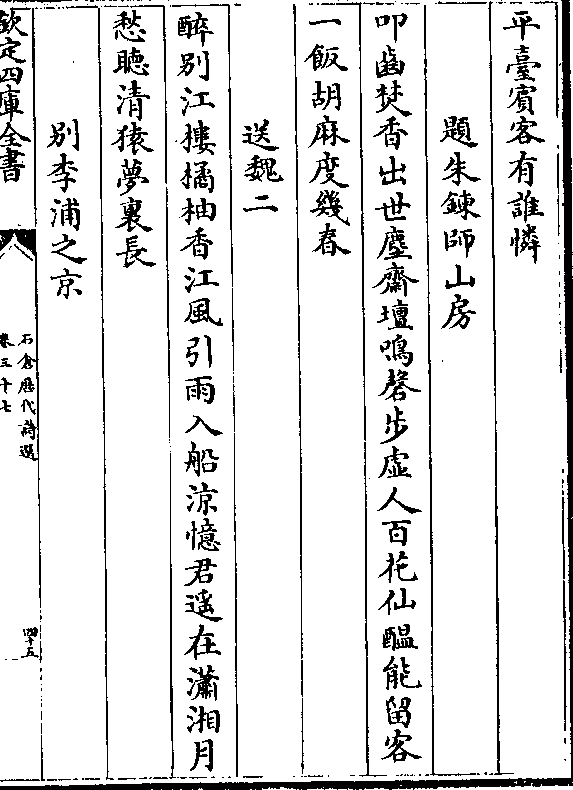 平臺賓客有誰憐
題朱鍊師山房
叩齒焚香出世塵齋壇鳴磬步虛人百花仙醞能留客
一飯胡麻度幾春
送魏二
醉別江樓橘柚香江風引雨入船涼憶君遥在瀟湘月
愁聽清猿夢裏長
别李浦之京
欽定四庫全書
石倉歷代詩選
卷三十七
四十五